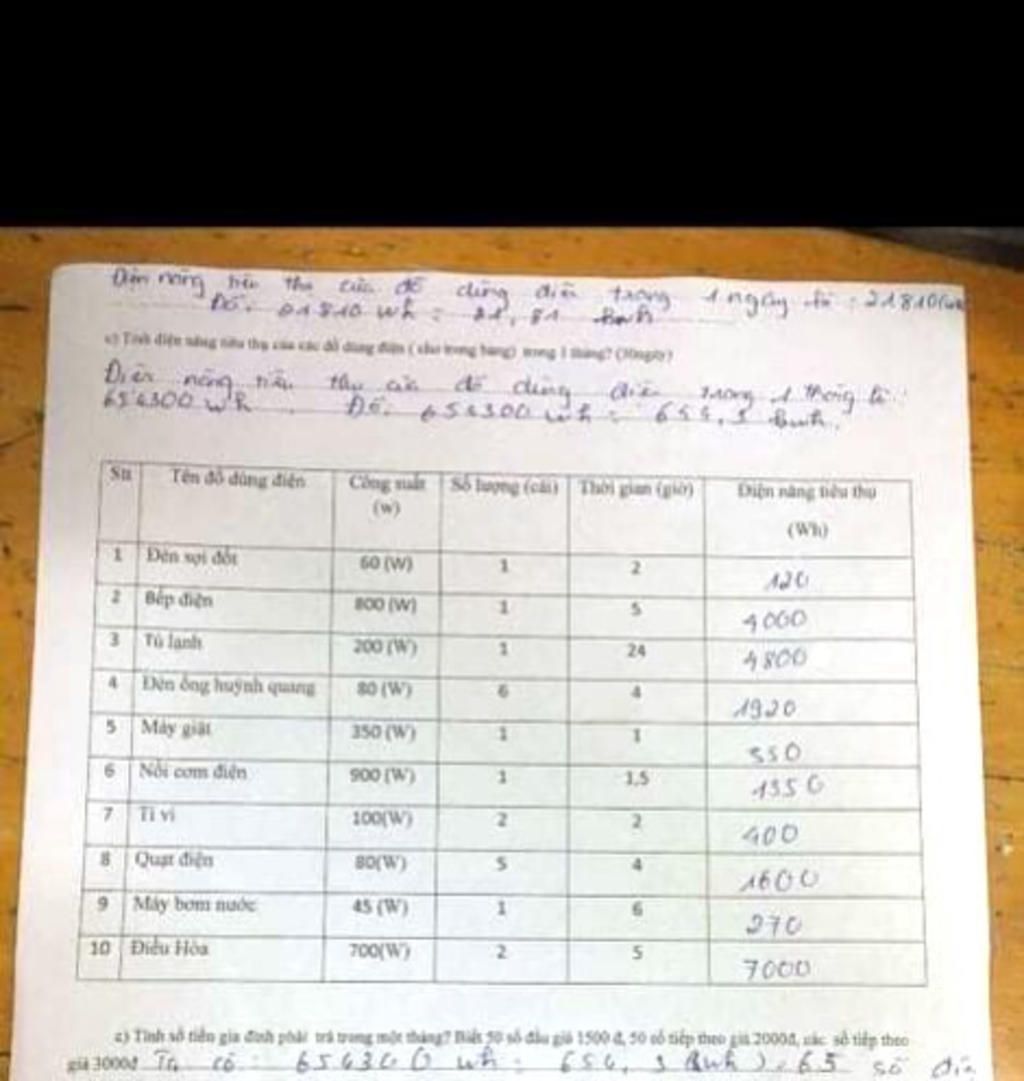 Điện năng tiêu thụ của đồ dùng điện trong 1 ngày là : 21810(wh
Đổi: 21810 wh = 21,81 kwh
c) Tính điện năng tiêu thụ của các đồ dùng điện ( cho trong bảng) trong 1 tháng? (30ngày)
Điện năng tiêu thụ của đồ dùng điện trong 1 tháng là:
654300 wh. Đổi 654300 wh = 654,3 kwh.
Stt Tên đồ dùng điện Công suất (w) Số lượng (cái) Thời gian (giờ) Điện năng tiêu thụ (Wh)
1 Đèn sợi đốt 60 (W) 1 2 120
2 Bếp điện 800 (W) 1 5 4000
3 Tủ lạnh 200 (W) 1 24 4800
4 Đèn ống huỳnh quang 80 (W) 6 4 1920
5 Máy giặt 350 (W) 1 1 350
6 Nồi cơm điện 900 (W) 1 1,5 1350
7 Ti vi 100(W) 2 2 400
8 Quạt điện 80(W) 5 4 1600
9 Máy bơm nước 45 (W) 1 6 270
10 Điều Hòa 700(W) 2 5 7000
c) Tính số tiền gia đình phải trả trong một tháng? Biết 50 số đầu giá 1500 đ, 50 số tiếp theo giá 2000đ, các số tiếp theo
giá 3000đ Ta có: 654300 wh = 654,3 kwh số điện